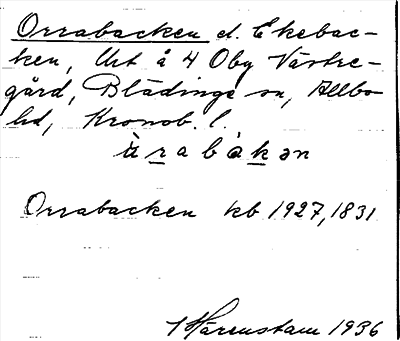 Orrabacken el. Ekebac-
ken, Urt å 4 Oby Västre-
gård, Blädinge sn, Allbo
hd, Kronob. l.
àrabàkən
Orrabacken kb 1927, 1831
Härenstam 1936